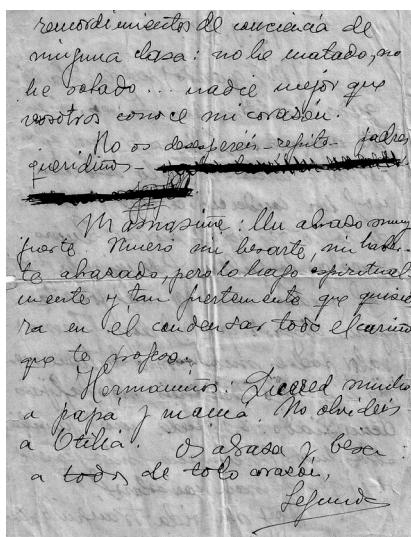 remordimientos de conciencia de
ninguna clase: no he matado, no
he robado... nadie mejor que
vosotros conoce mi corazón.
No os desesperéis - repito - padres
queridiños -
Mamasiña: Un abrazo muy
fuerte. Muero sin besarte, sin haber-
te abrazado, pero lo hago espiritual
mente y tan fuertemente que quisie
ra en él condensar todo el cariño
que te profeso.
Hermaniños: Quered mucho
a papá y mamá. No olvidéis
a Otilia. Os abraza y besa
a todos de todo corazón,
Segundo